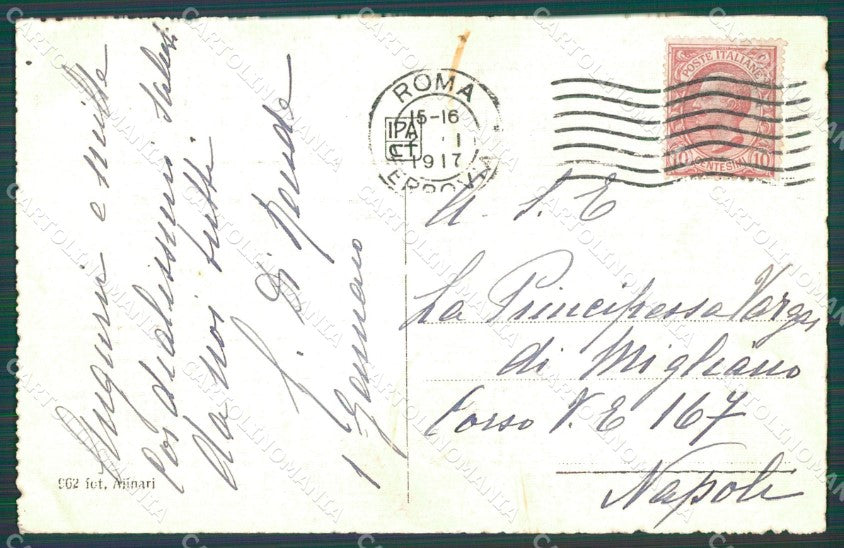 Auguri e mille
cordialissimi saluti
da noi tutti
G. Di
1 Gennaio
962 fot. Alinari
ROMA
15-16
1
1917
FERROVIA
POSTE ITALIANE
10 CENTESIMI 10
A S. E
La Principessa Vargas
di Migliano
Corso V. E 167
Napoli
CARTOLINOMANIA